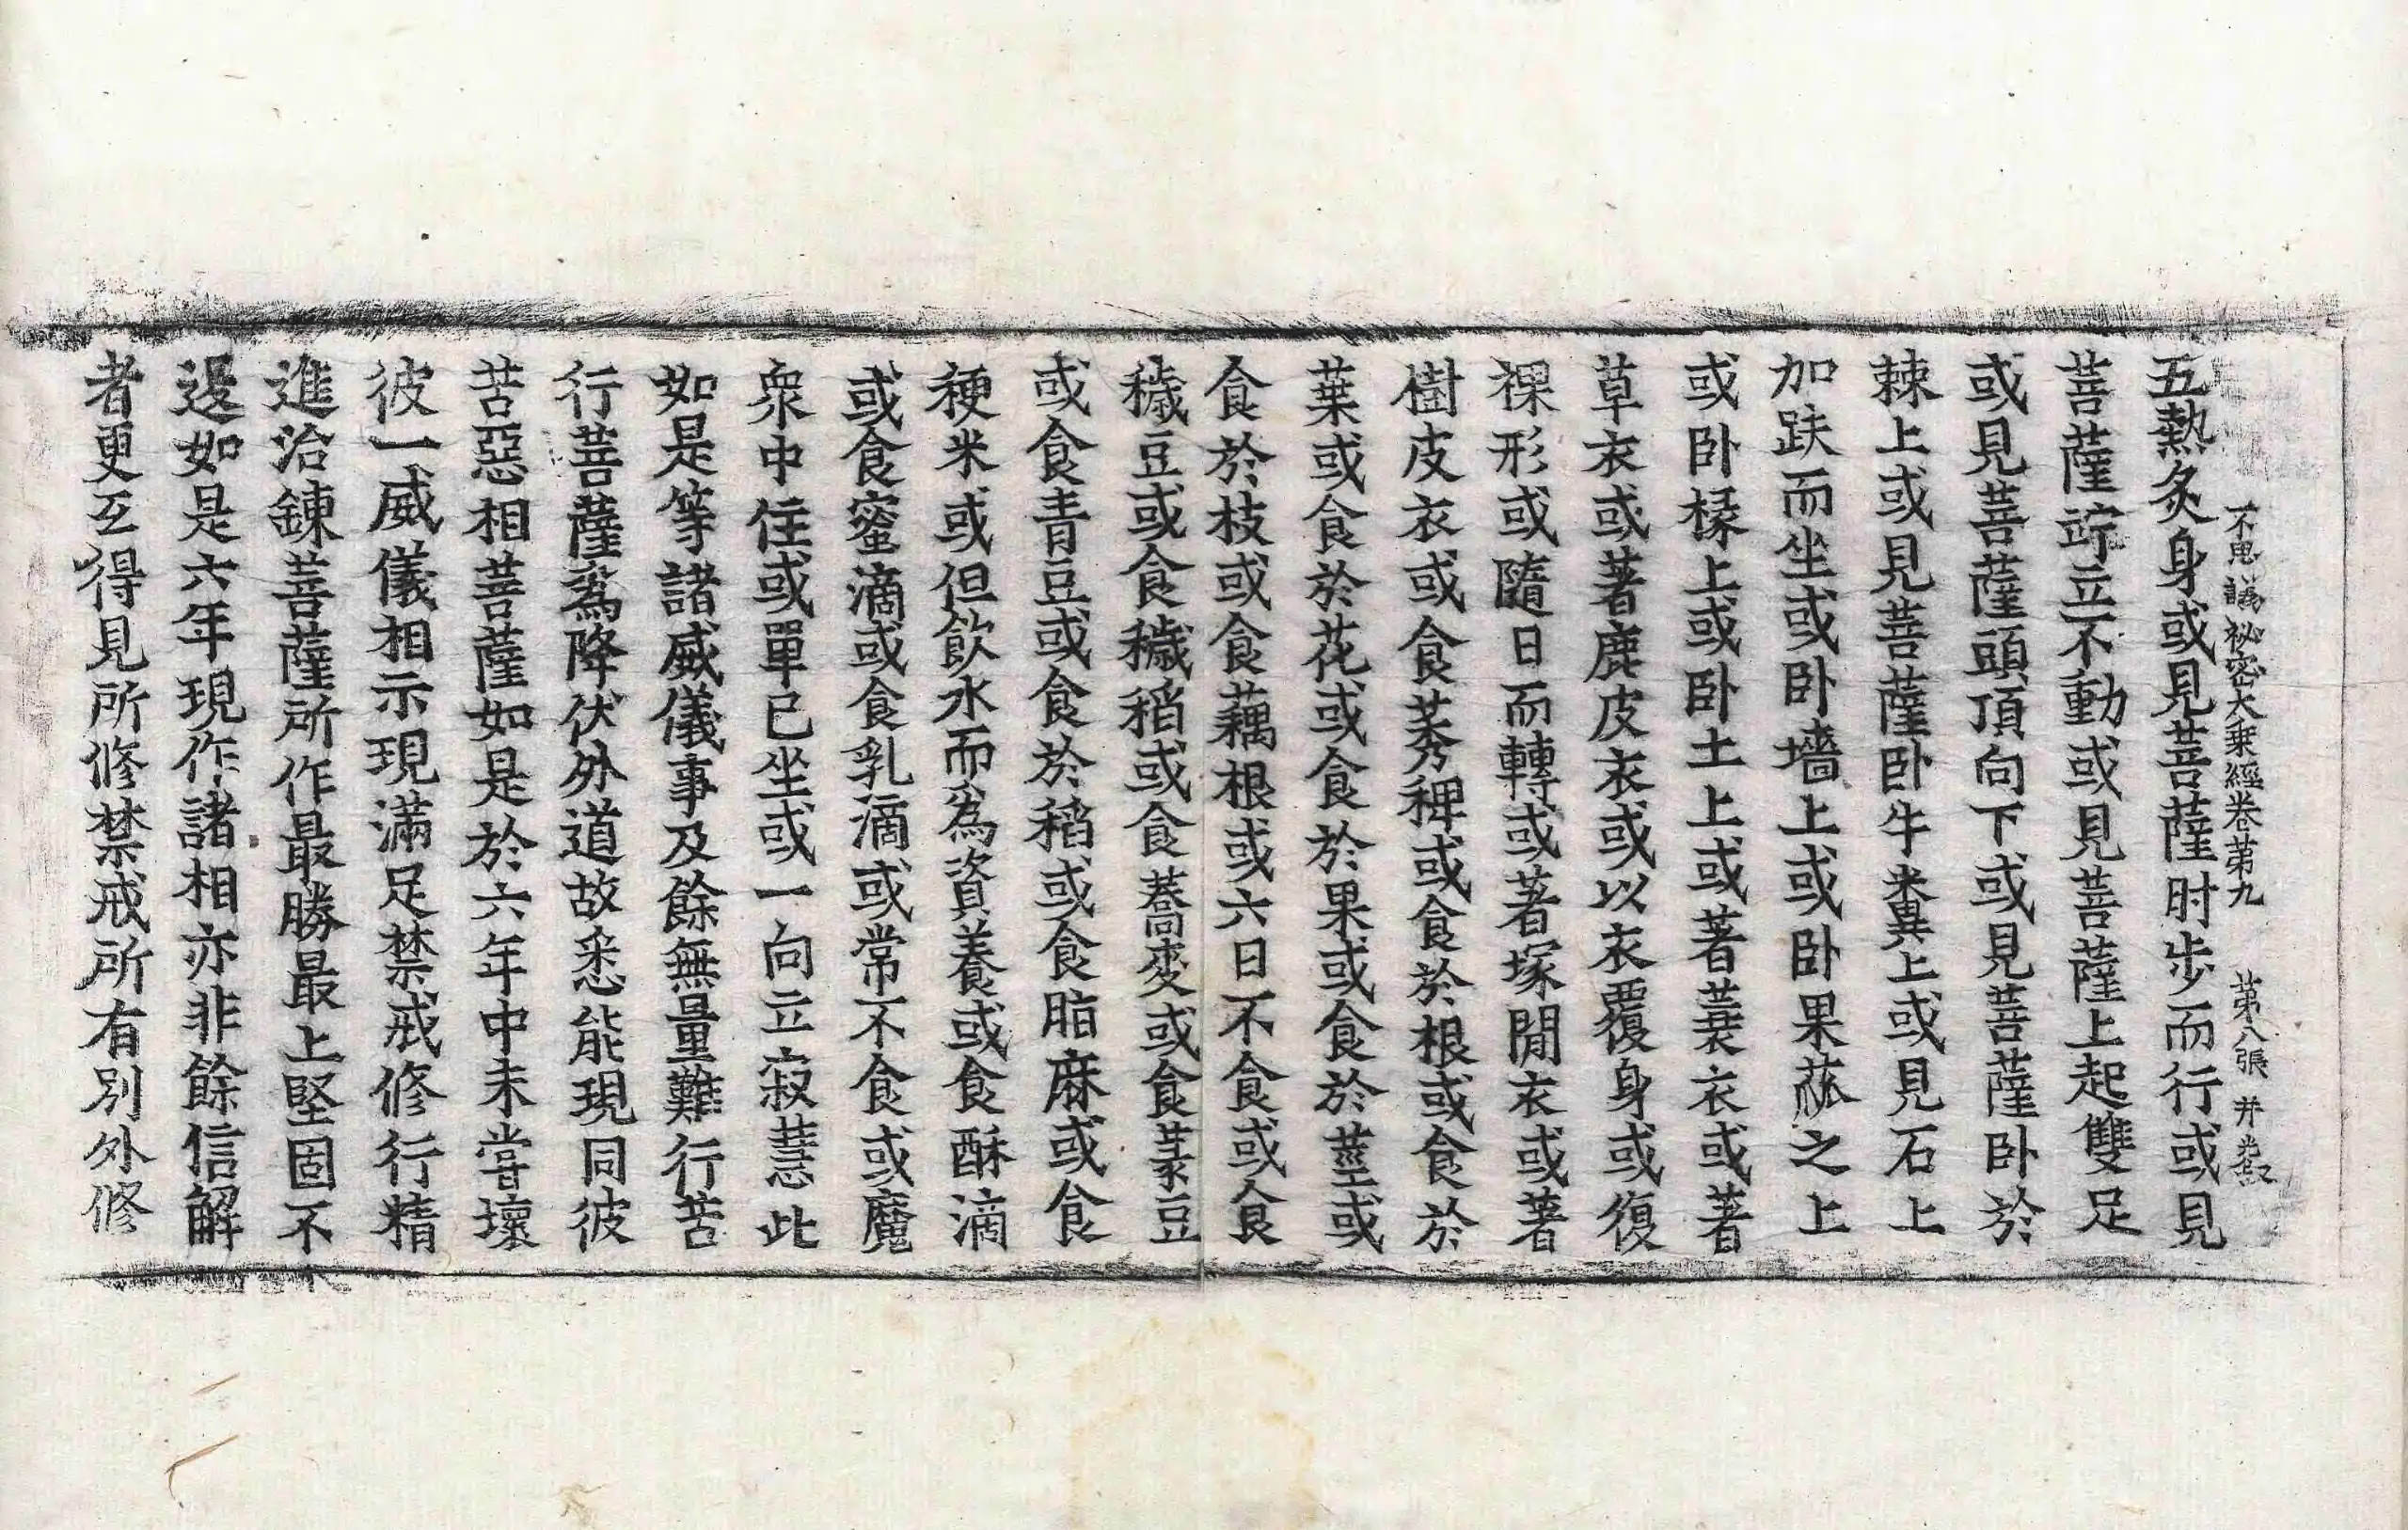 不思議祕密大乘經卷第九 第八張 并
五熱炙身或見菩薩肘步而行或見
菩薩竚立不動或見菩薩上起雙足
或見菩薩頭頂向下或見菩薩卧於
棘上或見菩薩卧牛糞上或見石上
加趺而坐或卧墻上或卧果蓏之上
或卧椽上或卧土上或著蓑衣或著
草衣或著鹿皮衣或以衣覆身或復
裸形或隨日而轉或著塚閒衣或著
樹皮衣或食莠稗或食於根或食於
葉或食於花或食於果或食於莖或
食於枝或食藕根或六日不食或食
穬豆或食穬稻或食蕎麥或食菉豆
或食青豆或食於稻或食脂麻或食
稉米或但飲水而為資養或食酥滴
或食蜜滴或食乳滴或常不食或魔
衆中住或單已坐或一向立寂慧此
如是等諸威儀事及餘無量難行苦
行菩薩為降伏外道故悉能現同彼
苦惡相菩薩如是於六年中未嘗壞
彼一威儀相示現滿足禁戒修行精
進治鍊菩薩所作最勝最上堅固不
退如是六年現作諸相亦非餘信解
者更互得見所修禁戒所有別外修